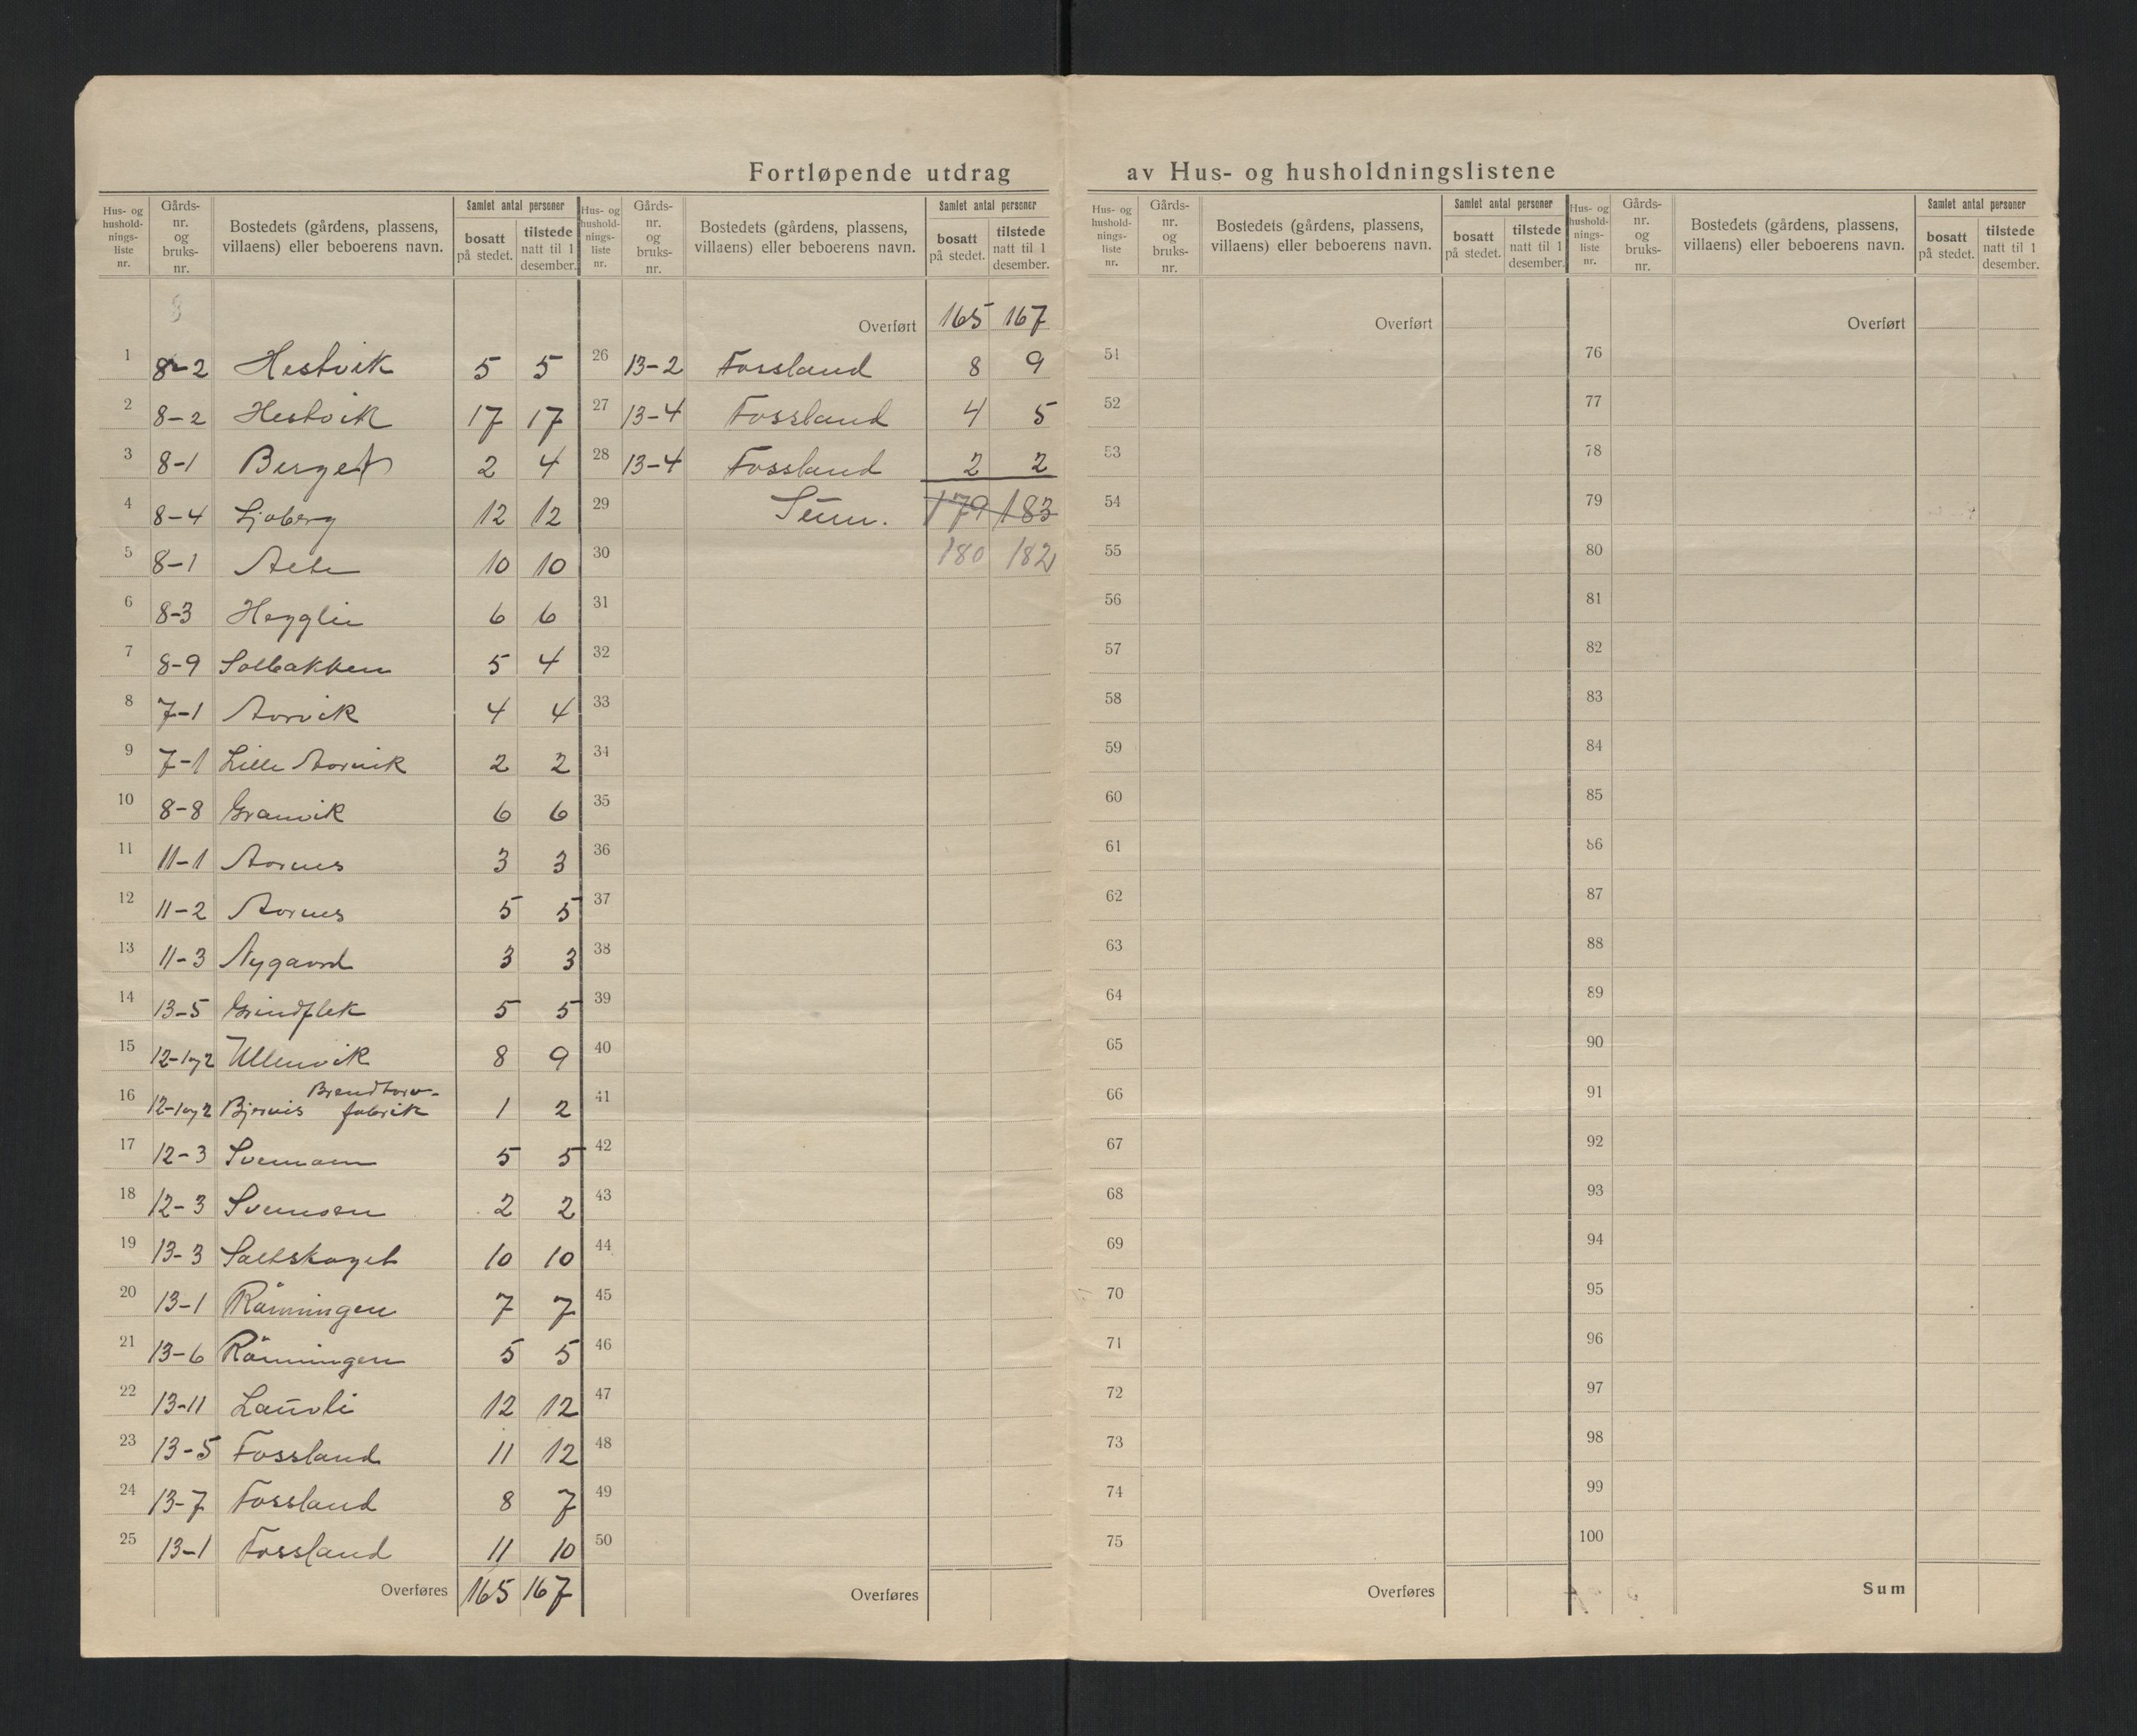 Fortløpende utdrag av Hus- og husholdningslistene
Hus- og hushold-nings-liste nr. | Gårds-nr. og bruks-nr. | Bostedets (gårdens, plassens, villaens) eller beboerens navn. | Samlet antal personer | bosatt på stedet. | tilstede natt til 1 desember.
8
1 8-2 Hestvik 5 5
2 8-2 Hestvik 17 17
3 8-1 Berget 2 4
4 8-4 Sjøberg 12 12
5 8-1 10 10
6 8-3 Hegglie 6 6
7 8-9 Solbakken 5 4
8 7-1 Aorvik 4 4
9 7-1 Lille Aorvik 2 2
10 8-8 Granvik 6 6
11 11-1 Aornes 3 3
12 11-2 Aornes 5 5
13 11-3 Nygaard 3 3
14 13-5 Grindflek 5 5
15 12-1og2 Ullenvik 8 9
16 12-1og2 Bjørnis Brendtorv-fabrik 1 2
17 12-3 Svemoen 5 5
18 12-3 Svemoen 2 2
19 13-3 Saltskoget 10 10
20 13-1 Rønningen 7 7
21 13-6 Rønningen 5 5
22 13-11 Lauvli 12 12
23 13-5 Fossland 11 12
24 13-7 Fossland 8 7
25 13-1 Fossland 11 10
Overføres 165 167
Hus- og hushold-nings-liste nr. | Gårds-nr. og bruks-nr. | Bostedets (gårdens, plassens, villaens) eller beboerens navn. | Samlet antal personer | bosatt på stedet. | tilstede natt til 1 desember.
Overført 165 167
26 13-2 Fossland 8 9
27 13-4 Fossland 4 5
28 13-4 Fossland 2 2
29 Sum. 179 183
30 180 182
31
32
33
34
35
36
37
38
39
40
41
42
43
44
45
46
47
48
49
50
Overføres
Hus- og hushold-nings-liste nr. | Gårds-nr. og bruks-nr. | Bostedets (gårdens, plassens, villaens) eller beboerens navn. | Samlet antal personer | bosatt på stedet. | tilstede natt til 1 desember.
Overført
51
52
53
54
55
56
57
58
59
60
61
62
63
64
65
66
67
68
69
70
71
72
73
74
75
Overføres
Hus- og hushold-nings-liste nr. | Gårds-nr. og bruks-nr. | Bostedets (gårdens, plassens, villaens) eller beboerens navn. | Samlet antal personer | bosatt på stedet. | tilstede natt til 1 desember.
Overført
76
77
78
79
80
81
82
83
84
85
86
87
88
89
90
91
92
93
94
95
96
97
98
99
100
Sum